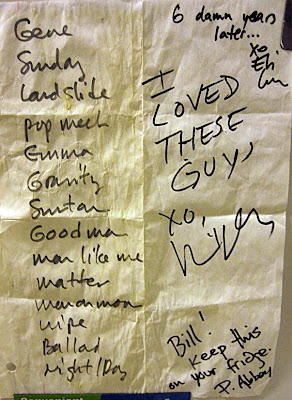 Gene
Sunday
Landslide
pop mech
Emma
Gravity
Suntan
Good man
man like me
matter
wipe
Ballad
Night/Day
6 damn years
later...
xo
I
LOVED
THESE
GUYS
XO,
Bill!
keep this
on your fridge.